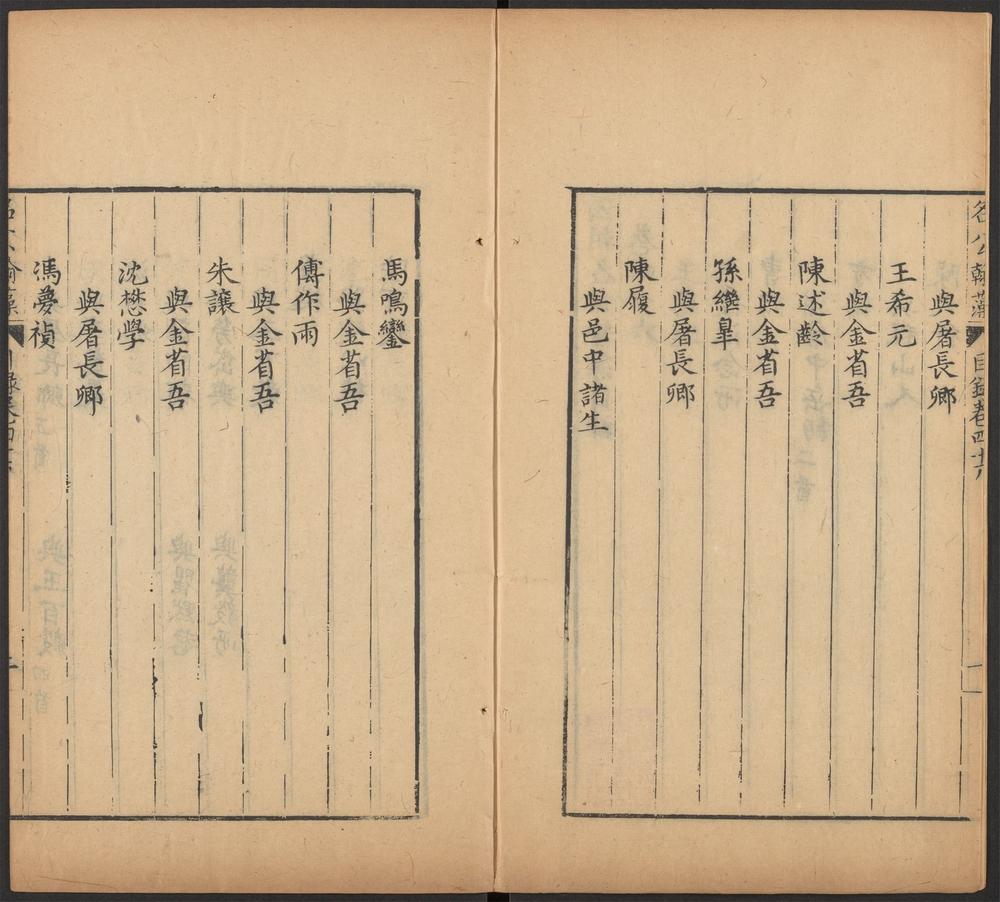 名公翰藻
目錄卷四十六
與屠長卿
王希元
與金省吾
陳述齡
與金省吾
孫繼臯
與屠長卿
陳履
與邑中諸生
馬鳴鑾
與金省吾
傅作雨
與金省吾
朱讓
與金省吾
沈懋學
與屠長卿
馮夢禎